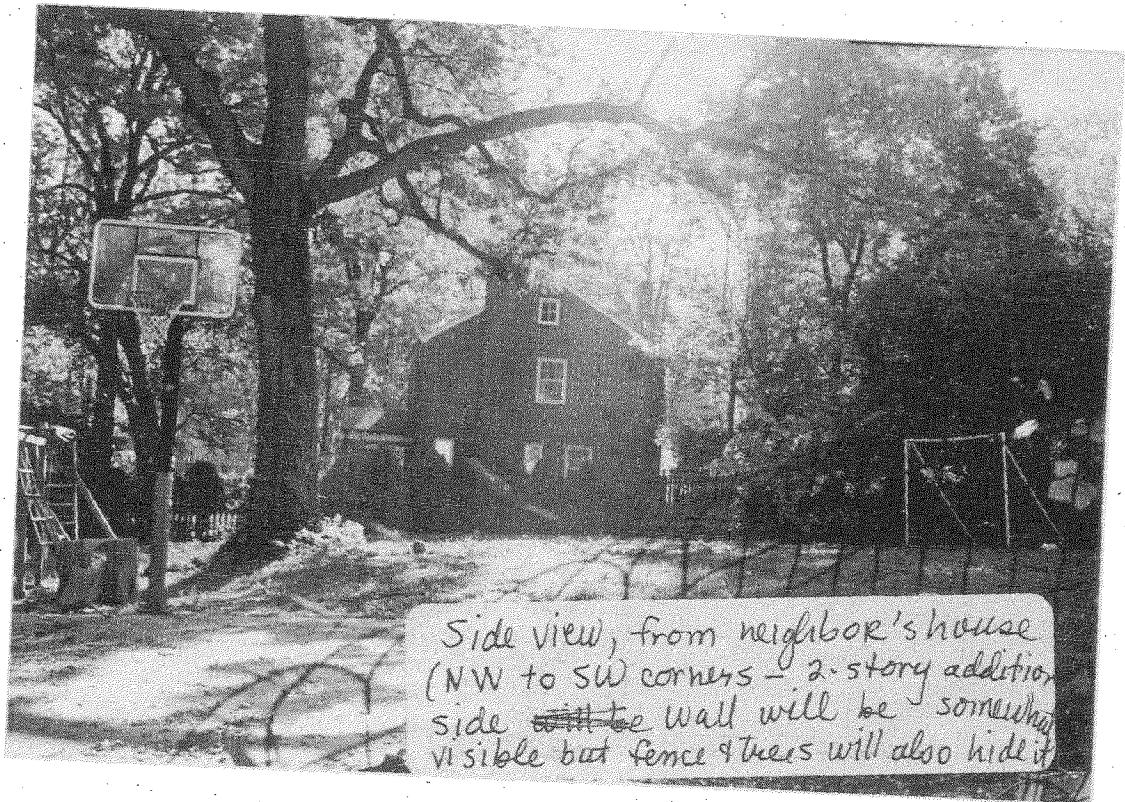 Side view, from neighbor's house
(NW to SW corners – 2-story addition
side will be wall will be somewhat
visible but fence & trees will also hide it